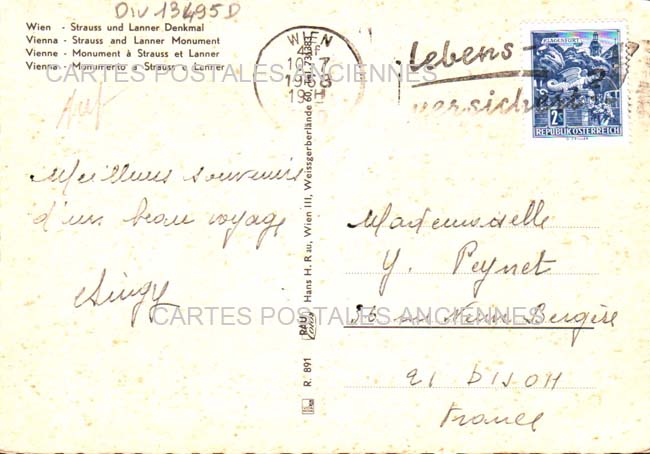 DIV 13495D
Wien - Strauss und Lanner Denkmal
Vienna - Strauss and Lanner Monument
Vienne - Monument à Strauss et Lanner
Vienna - Monumento a Strauss e Lanner
WIEN
lebens-
KLAGENFURT
2S
REPUBLIK ÖSTERREICH
CARTES POSTALES ANCIENNES
Meilleurs souvenirs
d'un beau voyage
Hans H. Rau, Wien III, Weissgerberlände
RAU
R. 891
Mademoiselle
Y. Peynet
36 Bergère
21 DIJON
France
CARTES POSTALES ANCIENNES